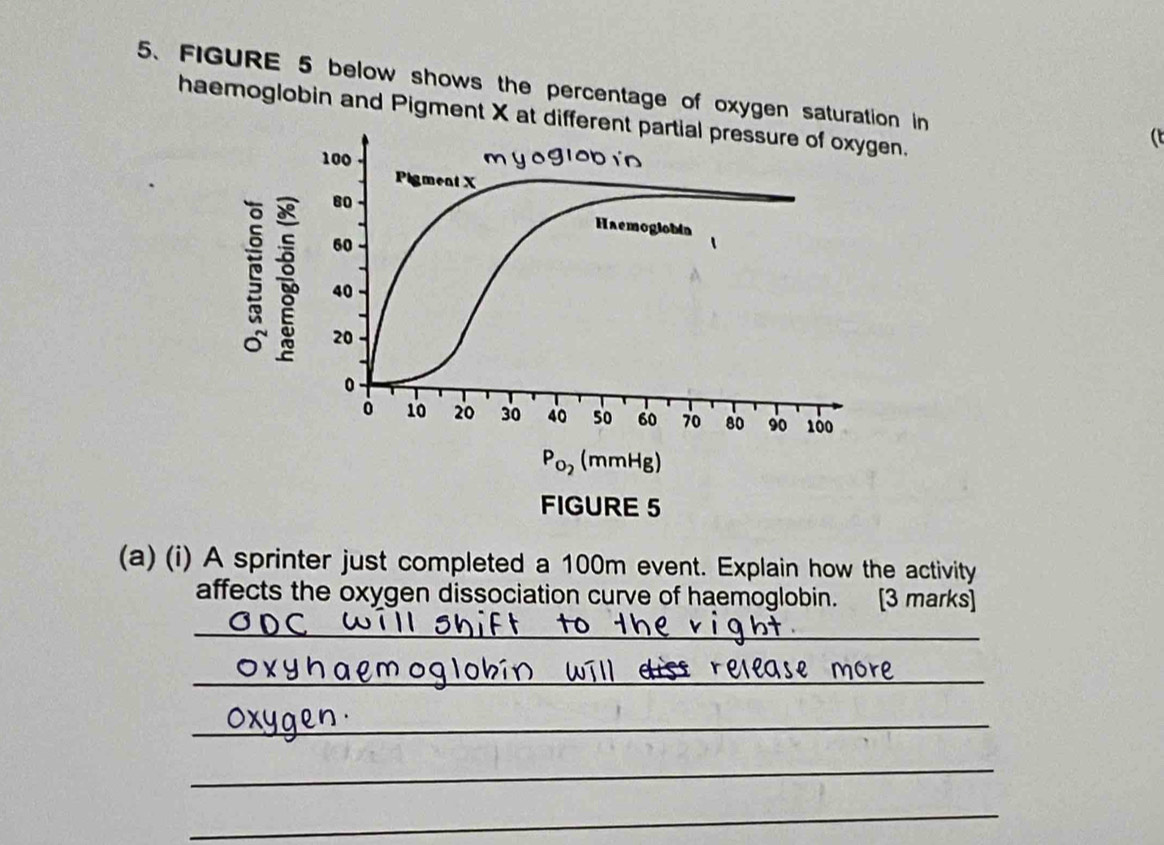 5. FIGURE 5 below shows the percentage of oxygen saturation in
haemoglobin and Pigment X at different partial pressure of oxygen.
(t
myoglobin
Pigment X
Haemoglobin
O₂ saturation of
haemoglobin (%)
100
80
60
40
20
0
0 10 20 30 40 50 60 70 80 90 100
PO₂ (mmHg)
FIGURE 5
(a) (i) A sprinter just completed a 100m event. Explain how the activity
affects the oxygen dissociation curve of haemoglobin. [3 marks]
ODC will shift to the right.
oxyhaemoglobin will release more
oxygen.